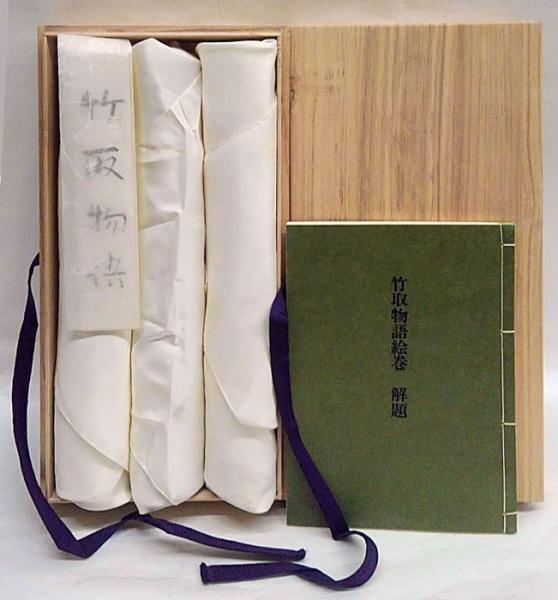 竹取物語
竹取物語絵巻 解題